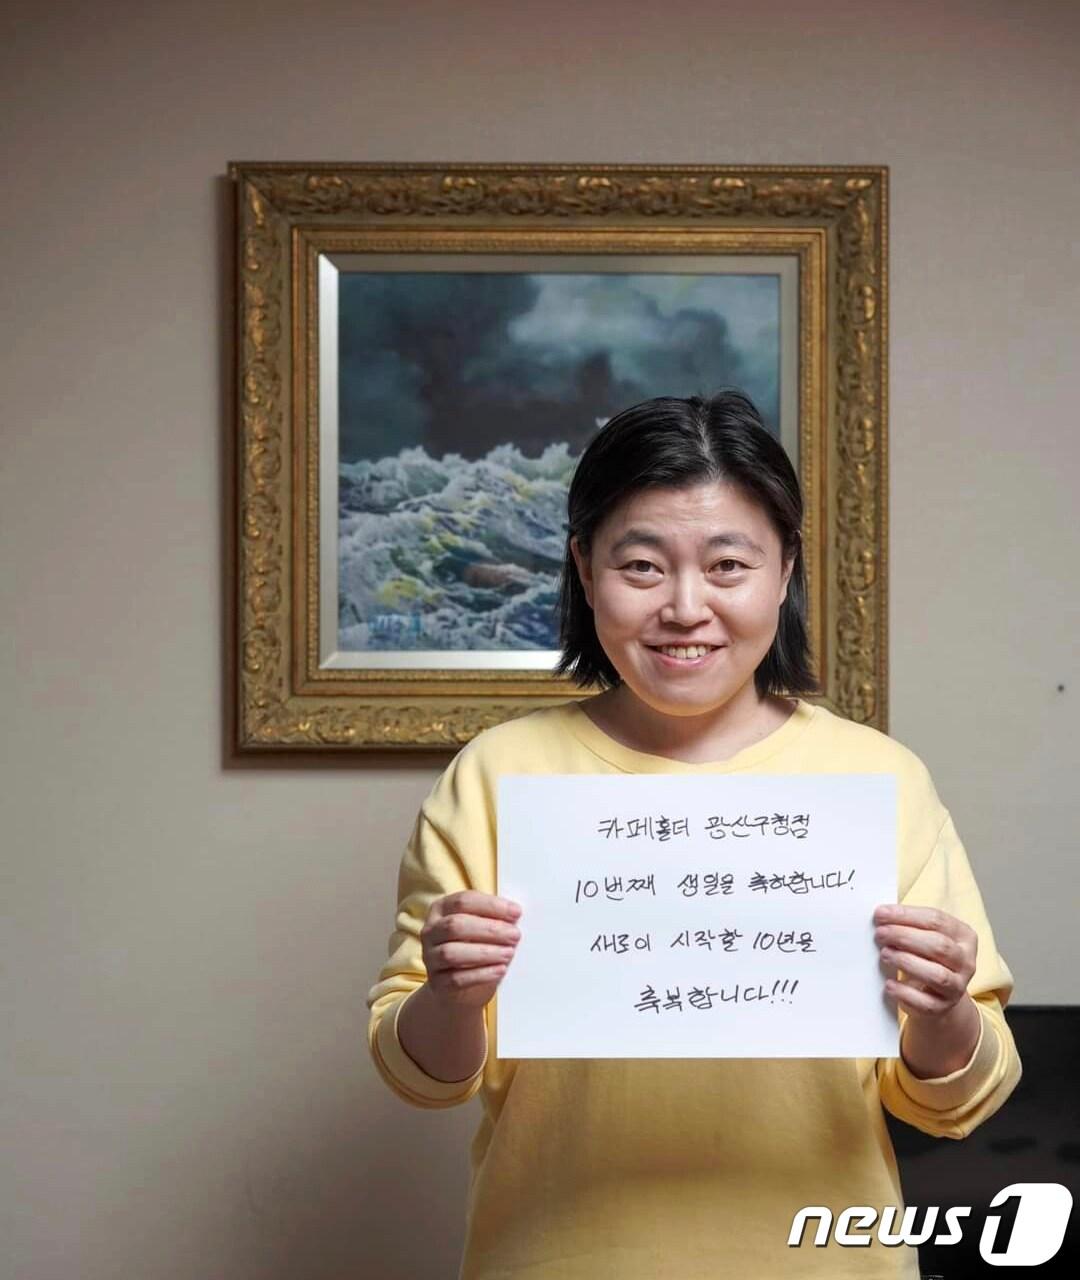 카페홀더 광산구청점
10번째 생일을 축하합니다!
새로이 시작할 10년을
축복합니다!!!
news1